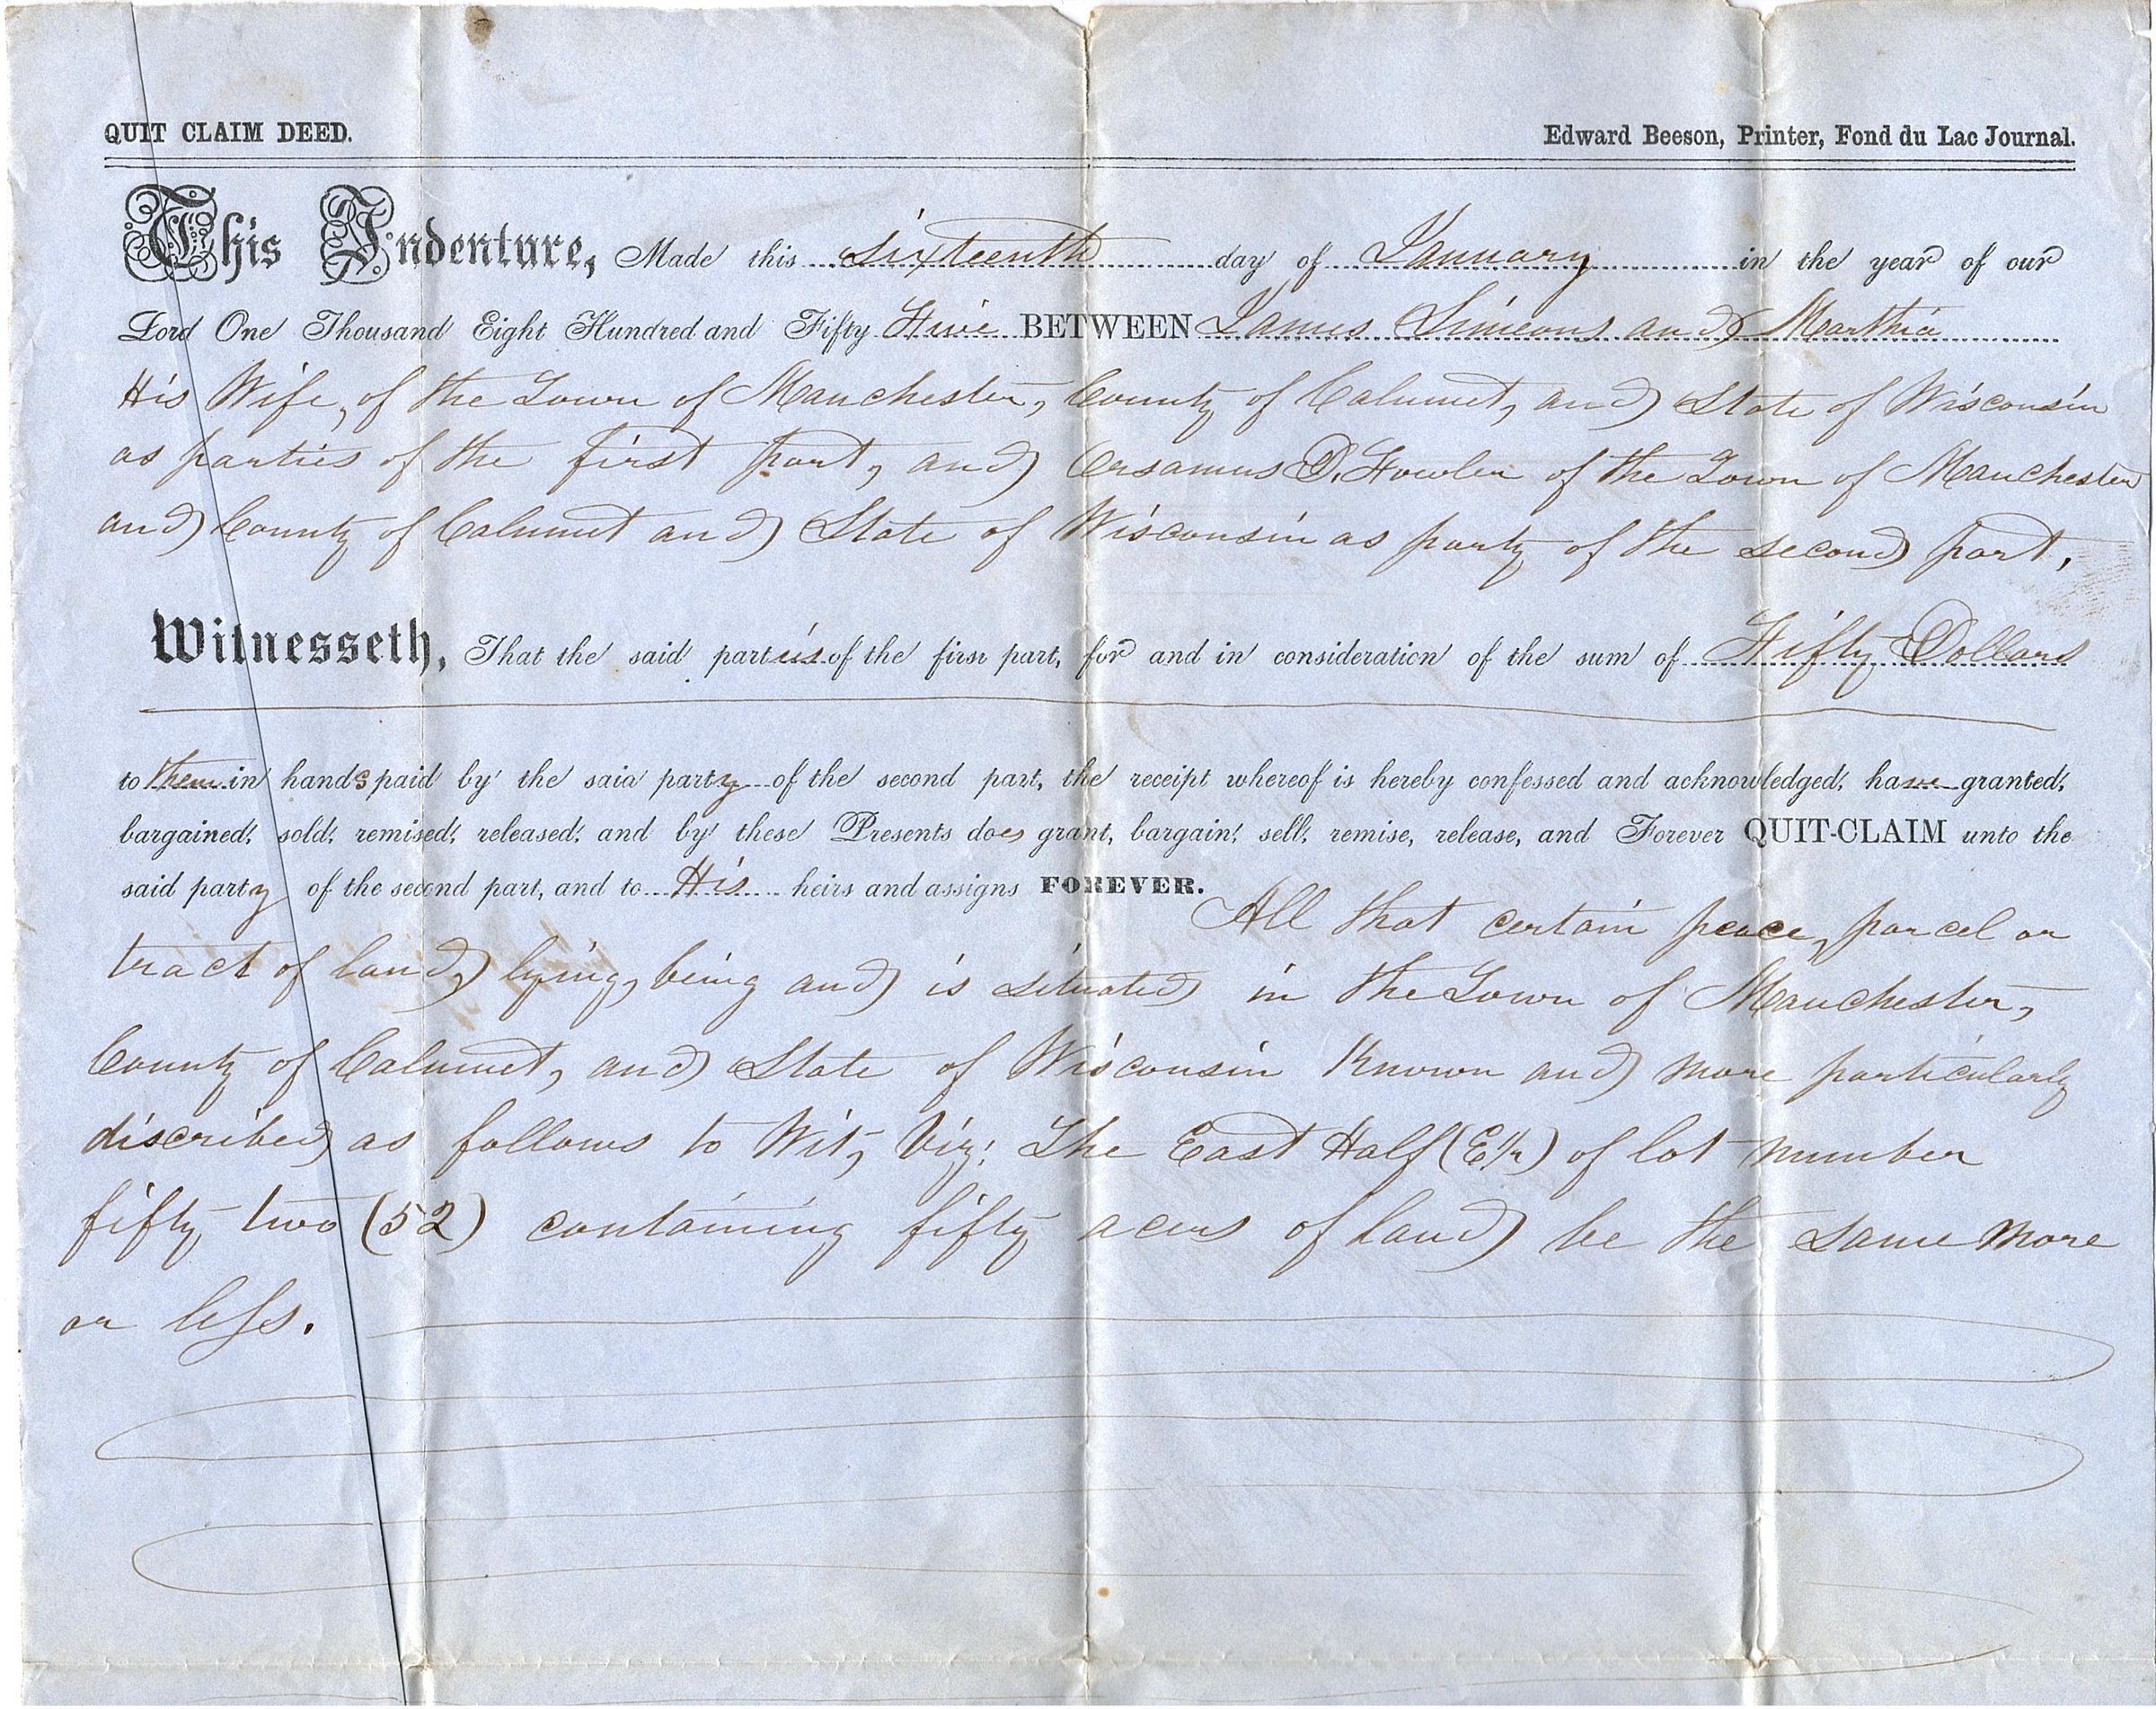 QUIT CLAIM DEED. Edward Beeson, Printer, Fond du Lac Journal.
This Indenture, Made this sixteenth day of January in the year of our
Lord One Thousand Eight Hundred and Fifty Five BETWEEN James Simeons and Marthia
His Wife, of the Town of Manchester, County of Calumet, and State of Wisconsin
as parties of the first part, and Orsamus D. Fowler of the Town of Manchester
and County of Calumet and State of Wisconsin as party of the second part,
Witnesseth, That the said parties of the first part, for and in consideration of the sum of Fifty Dollars
to them in hands paid by the said party of the second part, the receipt whereof is hereby confessed and acknowledged, have granted,
bargained, sold, remised, released, and by these Presents does grant, bargain, sell, remise, release, and Forever QUIT-CLAIM unto the
said party of the second part, and to His heirs and assigns FOREVER.
All that certain peace, parcel or
tract of land, lying, being and is situated in the Town of Manchester,
County of Calumet, and State of Wisconsin Known and more particularly
discribed as follows to Wit, Viz: The East Half (E 1/2) of lot number
fifty two (52) containing fifty acers of land be the same more
or less.